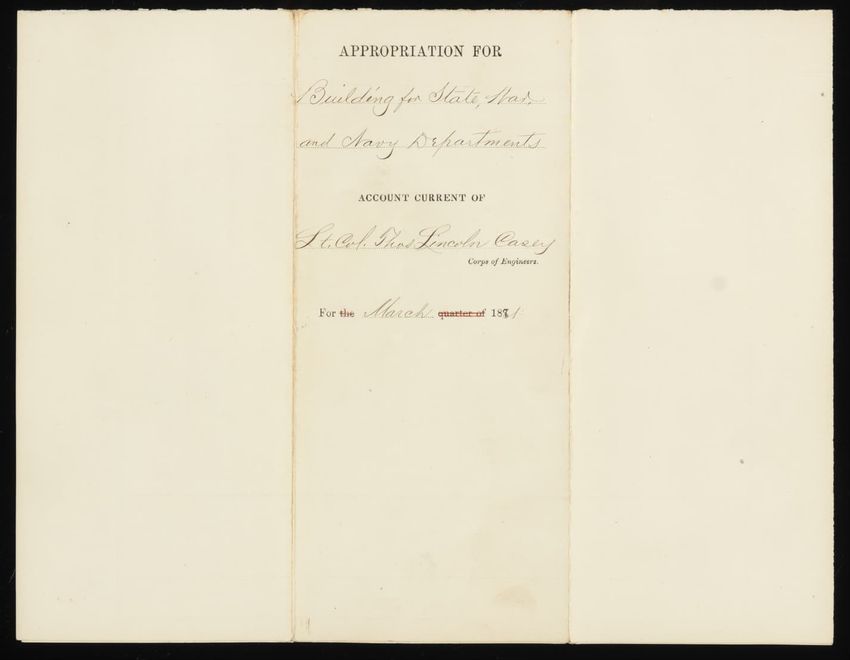 APPROPRIATION FOR
Building for State, War,
and Navy Departments
ACCOUNT CURRENT OF
Lt. Col. Thos Lincoln Casey
Corps of Engineers.
For the March quarter of 1881